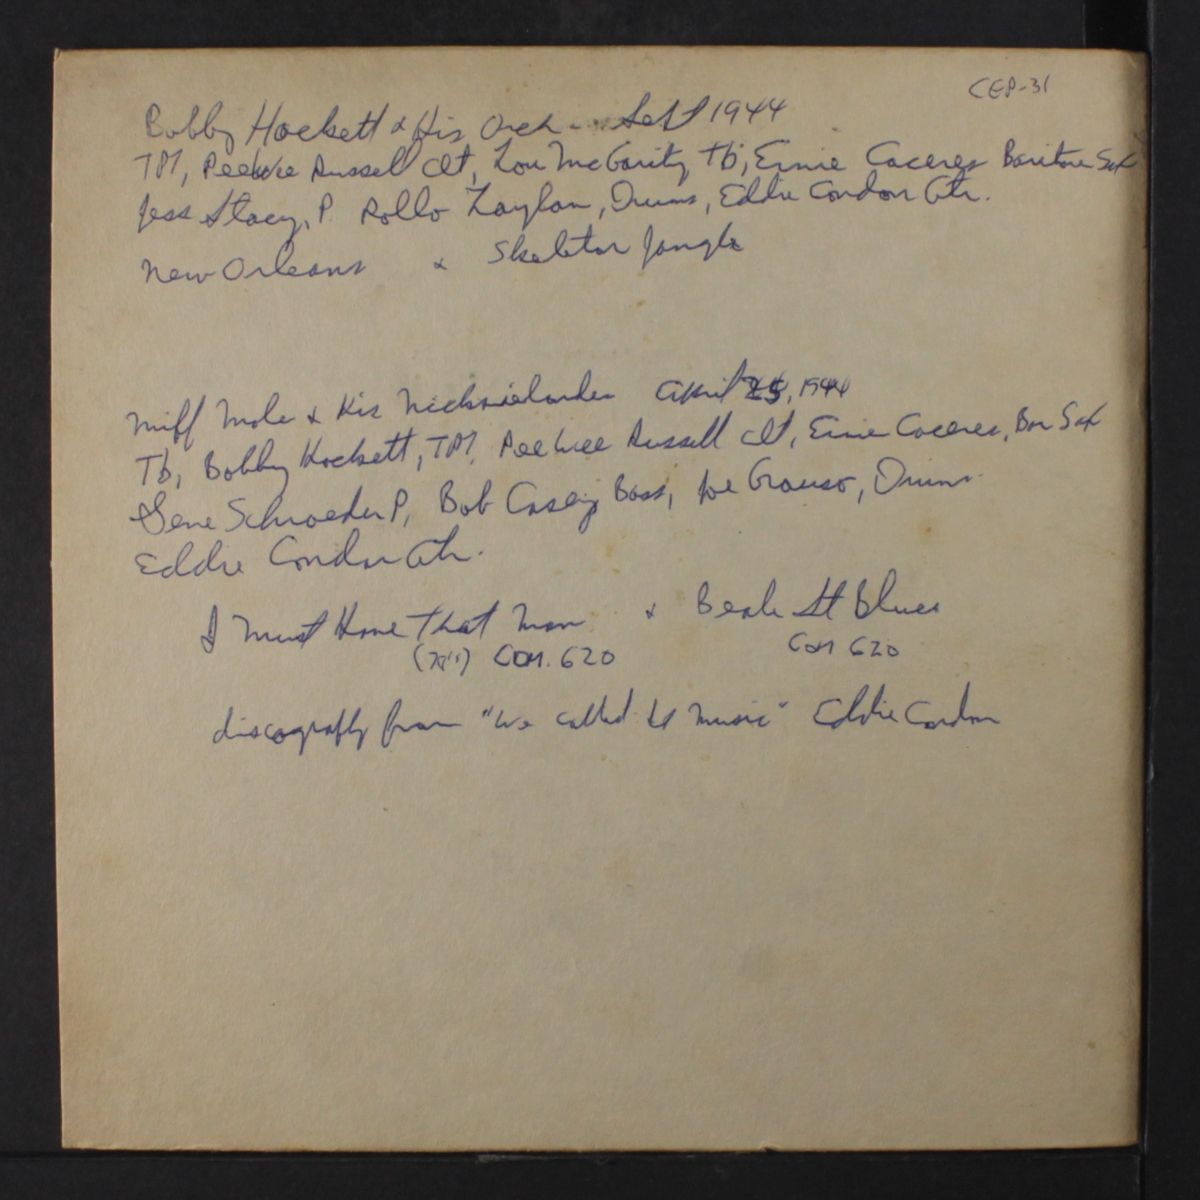 CEP-31
Bobby Hackett & His Orch - Sept 1944
TPT, PeeWee Russell Clt, Lou McGarity Tb, Ernie Caceres Baritone Sax
Jess Stacy, P. Rollo Laylan, Drums, Eddie Condon Gtr.
New Orleans & Skeleton Jangle
Miff Mole & His Nicksielanders April 25, 1944
Tb, Bobby Hackett, TPT, PeeWee Russell Clt, Ernie Caceres, Bar Sax
Gene Schroeder P, Bob Casey Bass, Joe Grauso, Drums
Eddie Condon Gtr.
I Must Have That Man & Beale St Blues
COM. 620 Com 620
discography from "We called it Music" Eddie Condon